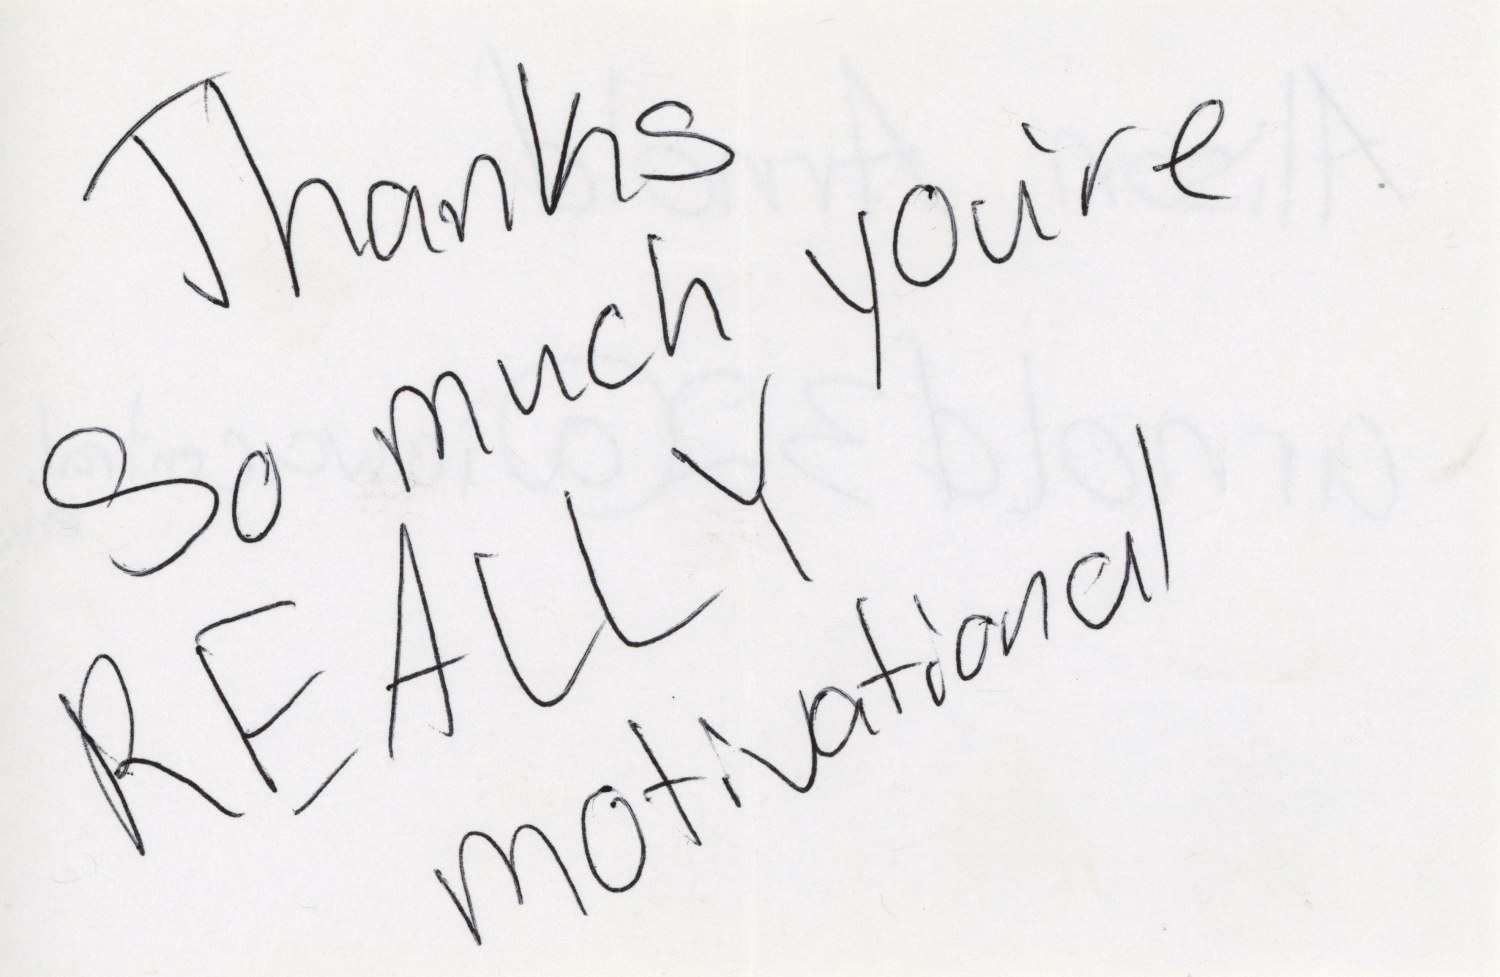 Thanks
So much you're
REALLY
motivational